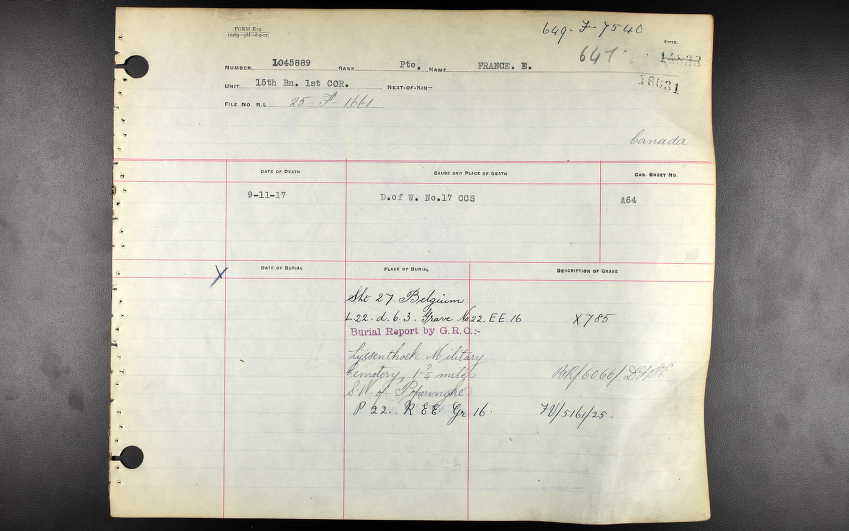 649-F-7540
647
18631
NUMBER 1045889 RANK Pte. NAME FRANCE. E.
UNIT 15th Bn. 1st COR. NEXT-OF-KIN—
FILE NO. R.L. 25-F-1661
Canada
DATE OF DEATH CAUSE AND PLACE OF DEATH CAS. SHEET NO.
9-11-17 D.of W. No.17 CCS A64
X DATE OF BURIAL PLACE OF BURIAL DESCRIPTION OF GRAVE
Sht 27. Belgium
L.22.d.6.3. Grave No 22.EE.16 X785
Burial Report by G.R.C:-
Lyssenthoek Military
Cemetery, 1¾ miles
S.W of Poperinghe
P 22. R EE Gr 16. IV/5161/25.